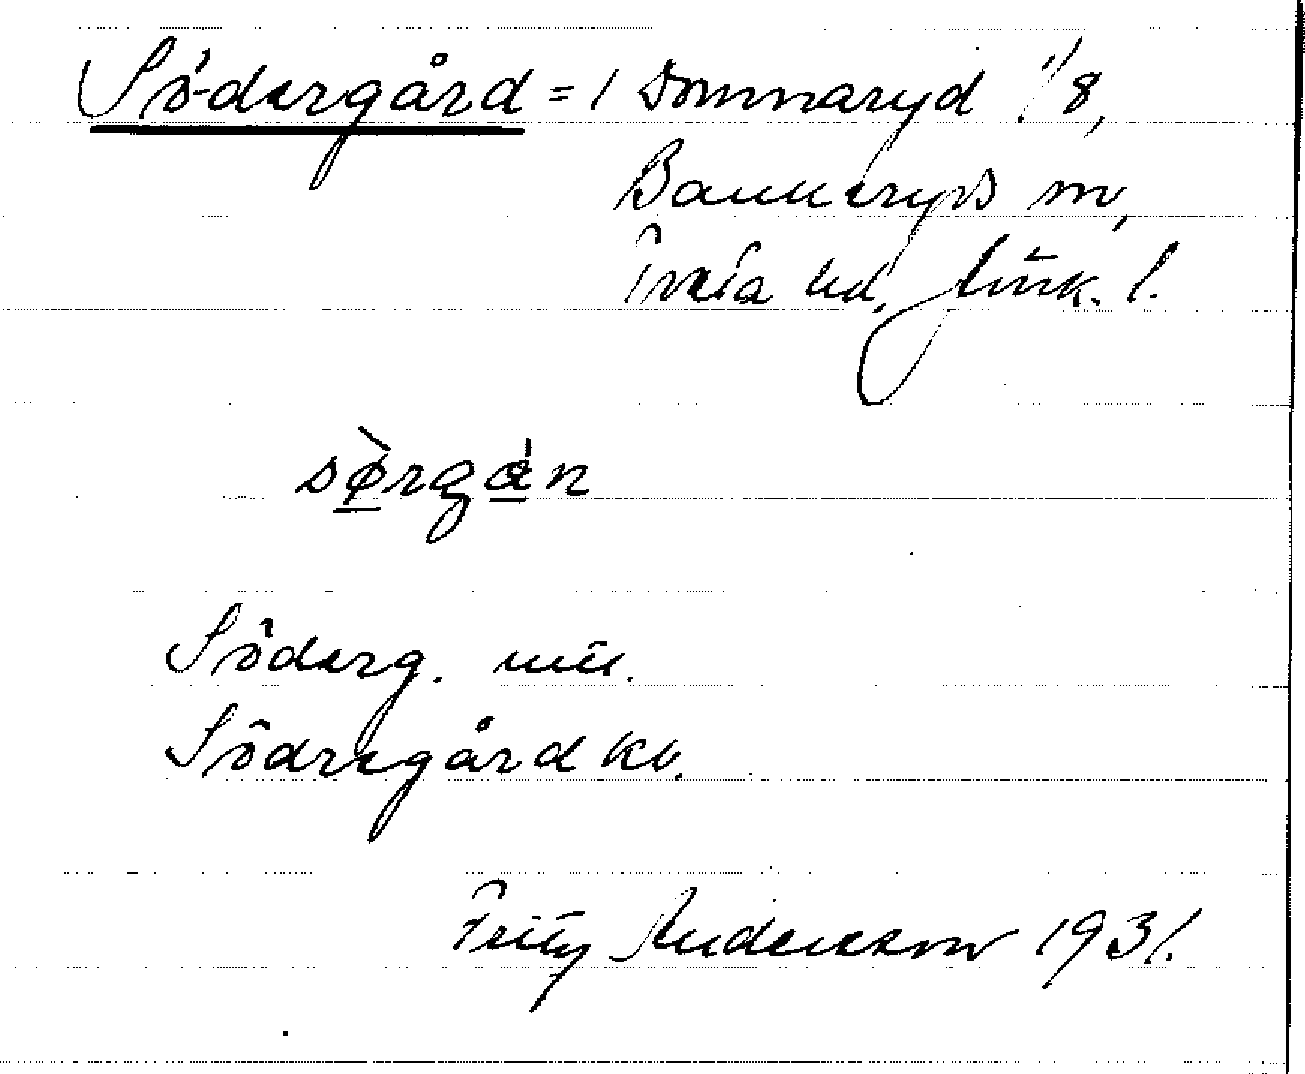 Södergård = 1 Sommaryd 1/8,
Bankeryds sn,
Tveta hd, Jönk. l.
sørgɑn
Söderg. utt.
Södregård kb.
Fritz Andersson 1931.